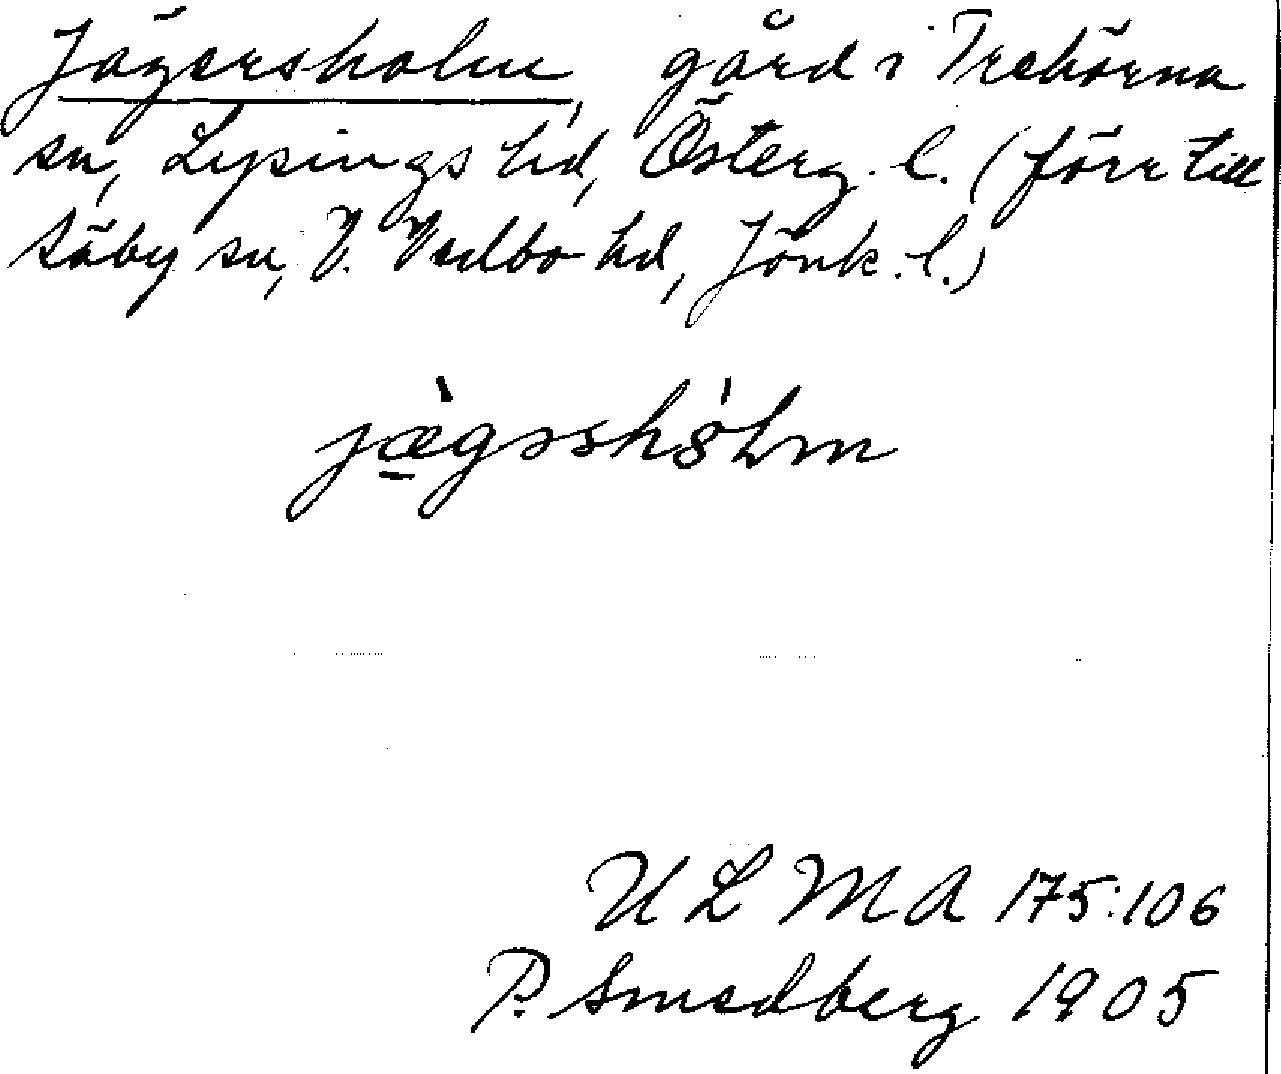 Jägersholm, gård i Trehörna
sn, Lysings hd, Österg. l. (förr till
Säby sn, V. Vedbo hd, Jönk. l.)
jæ̀gsshólm
ULMA 175:106
P. Smedberg 1905